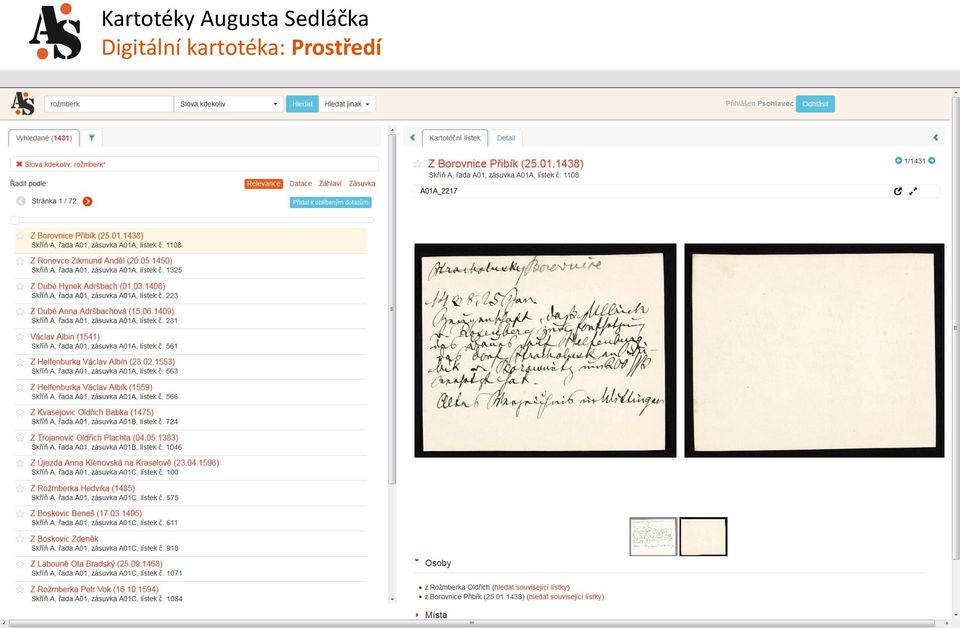 Kartotéky Augusta Sedláčka
Digitální kartotéka: Prostředí
rožmberk Slova kdekoliv Hledat Hledat jinak Přihlášen Psohlavec Odhlásit
Vyhledané (1431)
Slova kdekoliv: rožmberk*
Řadit podle: Relevance Datace Záhlaví Zásuvka
Stránka 1 / 72 Přidat k oblíbeným dotazům
Z Borovnice Přibík (25.01.1438)
Skříň A, řada A01, zásuvka A01A, lístek č. 1108
Z Ronovce Zikmund Anděl (20.05.1450)
Skříň A, řada A01, zásuvka A01A, lístek č. 1325
Z Dubé Hynek Adršbach (01.03.1408)
Skříň A, řada A01, zásuvka A01A, lístek č. 223
Z Dubé Anna Adršbachová (15.06.1409)
Skříň A, řada A01, zásuvka A01A, lístek č. 231
Václav Albin (1541)
Skříň A, řada A01, zásuvka A01A, lístek č. 561
Z Helfenburka Václav Albín (23.02.1553)
Skříň A, řada A01, zásuvka A01A, lístek č. 563
Z Helfenburka Václav Albík (1559)
Skříň A, řada A01, zásuvka A01A, lístek č. 566
Z Kvasejovic Oldřich Babka (1475)
Skříň A, řada A01, zásuvka A01B, lístek č. 724
Z Trojanovic Oldřich Plachta (04.05.1383)
Skříň A, řada A01, zásuvka A01B, lístek č. 1046
Z Újezda Anna Klenovská na Kraselově (23.04.1596)
Skříň A, řada A01, zásuvka A01C, lístek č. 100
Z Rožmberka Hedvika (1485)
Skříň A, řada A01, zásuvka A01C, lístek č. 575
Z Boskovic Beneš (17.03.1495)
Skříň A, řada A01, zásuvka A01C, lístek č. 611
Z Boskovic Zdeněk
Skříň A, řada A01, zásuvka A01C, lístek č. 918
Z Labouně Ota Bradský (25.09.1468)
Skříň A, řada A01, zásuvka A01C, lístek č. 1071
Z Rožmberka Petr Vok (16.10.1594)
Skříň A, řada A01, zásuvka A01C, lístek č. 1084
Kartotéční lístek Detail
Z Borovnice Přibík (25.01.1438) 1/1431
Skříň A, řada A01, zásuvka A01A, lístek č. 1108
A01A_2217
Borovnice
1438, 25 Jan
Osoby
z Rožmberka Oldřich (hledat související lístky)
z Borovnice Přibík (25.01.1438) (hledat související lístky)
Místa